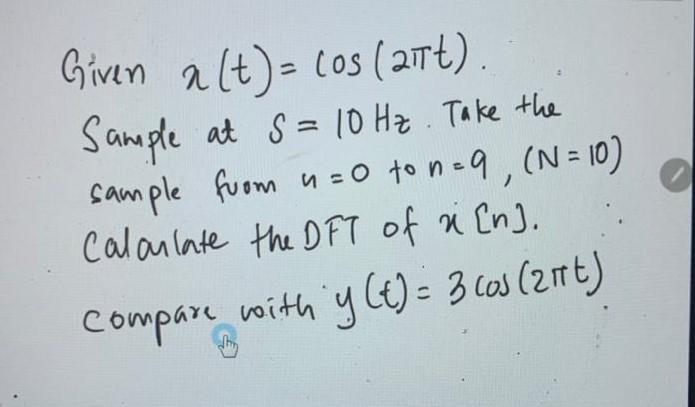 Given x(t) = cos(2πt).
Sample at S = 10 Hz. Take the
sample from n=0 to n=9, (N=10)
Calculate the DFT of x[n].
Compare with y(t) = 3 cos(2πt)